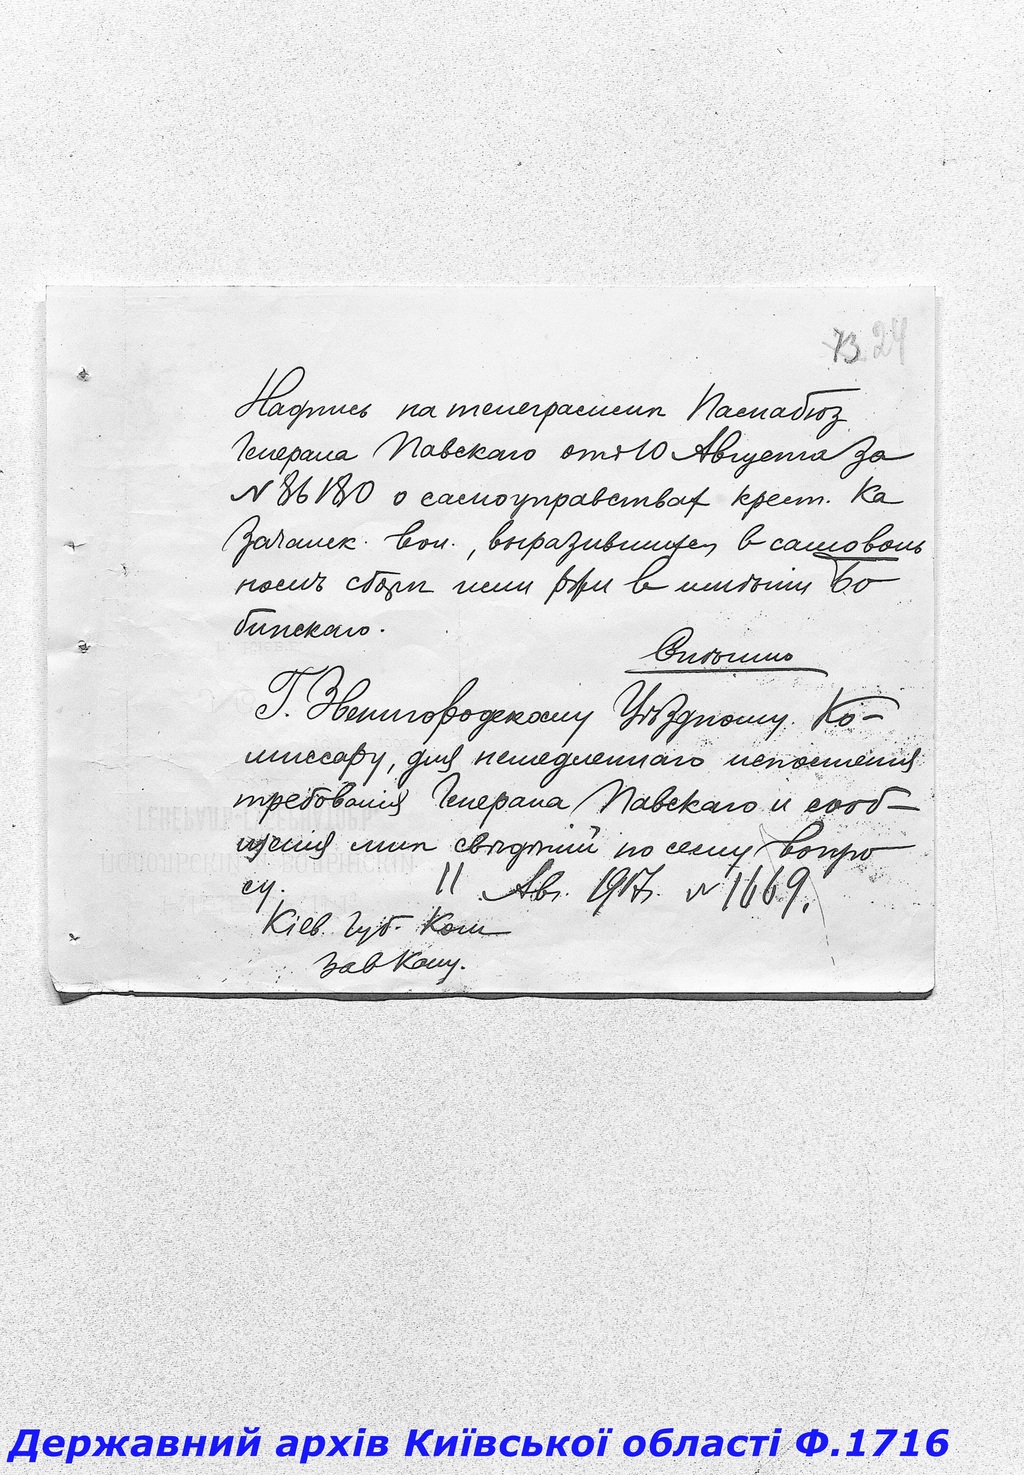 73 24
Надпись на телеграмме Наснабюз
Генерала Павскаго отъ 10 Августа за
№ 86180 о самоуправствах крест. Ка
зачанск. вол., выразившихся в самоволь
ном сборе ими ржи в имении Бо
бинскаго.
Спешно
Г. Звенигородскому Уѣздному Ко-
миссару, для немедленнаго исполнения
требования Генерала Павскаго и сооб-
щения мне свѣдѣний по сему вопро
су. 11 Авг. 1917г. № 1669.
Кіев. Губ. Ком
Державний архів Київської області Ф.1716